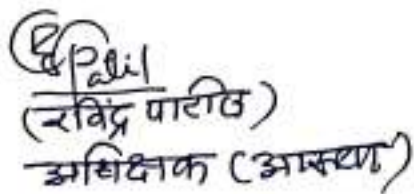 Patil
(रविंद्र पाटील)
अधिक्षक (आस्था)